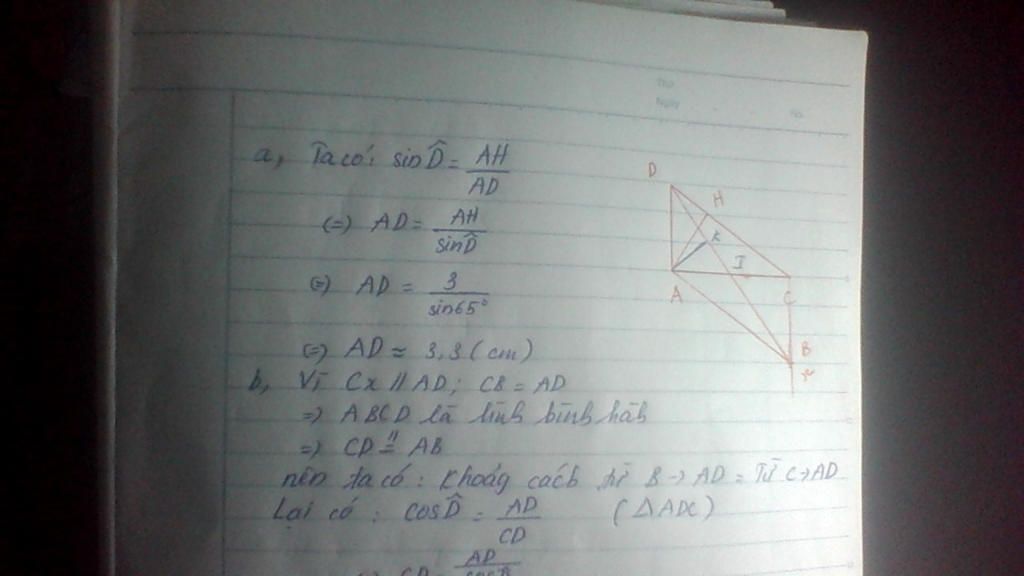 Thứ
Ngày
No.
a, Ta có: sin D̂ = AH/AD
(=) AD = AH/sin D̂
(=) AD = 3/sin65°
(=) AD ≈ 3,3 (cm)
b, Vì Cx // AD; CB = AD
=) ABCD là hình bình hành
=) CD // = AB
nên ta có: Khoảg cách từ B -> AD = Từ C -> AD
Lại có: cos D̂ = AD/CD (∆ADC)
(=) CD = AD/
D
H
K
I
A
C
B
x